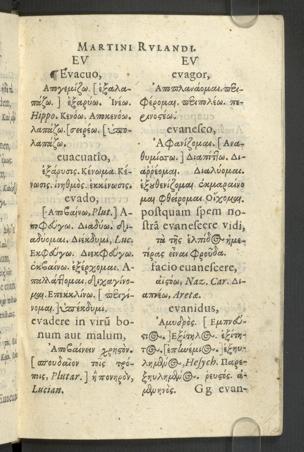 MARTINI RVLANDI.
EV
Evacuo,
Ἀπογεμίζω. [ ἐξαλα-
πάζω. ] ἐξαρύω. Ἰνέω.
Hippo. Κενόω. Ἀποκενόω.
λαπάζω. [ σειρέω. ὑπο-
λαπάζω,
euacuatio,
ἐξάρυσις. Κένωμα. Κέ-
νωσις. ἐκκένωσις.
evado,
[ Ἀποβαίνω, Plut. ] Ἀ-
ποφεύγω. Διαδύω.
Διεκδυμι, Luc.
Ἐκφεύγω. Διεκφεύγω.
ἐκβαίνω. ἐξέρχομαι. Ἀ-
παλλάττομαι.
μαι. Ἐπεκκλίνω. [ περιγί-
νομαι. ] ὑπεκδυμι.
evadere in virū bo-
num aut malum,
Ἀποβαίνειν χρηστὸν.
[ σπουδαῖον τοῖς τρό-
ποις, Plutar. ] ἢ πονηρὸν,
Lucian.
EV
evagor,
Ἀποπλανάομαι. περι-
φέρομαι. περιπλέω. πε-
ρινοστέω.
evanesco,
Ἀφανίζομαι. [ Ἀνα-
θυμιάω. ] Διαπίπτω. Δι-
αῤῥέομαι. Διαλύομαι.
ἐξουθενίζομαι ἐκμαραίνο
μαι φθείρομαι Οἴχομαι.
postquam spem no-
strā evanescere vidi,
τὰ τῆς ἐλπίδος ἡμε-
τέρας εἶναι φροῦδα.
facio euanescere,
ἀϊστόω, Naz. Car. Δι-
απνέω, Aretæ.
evanidus,
Ἀμυδρός. [
Ἐξίτηλος. ἐξίτη-
τος.
Hesych. Παρε-
ῥευστός. ἀ-
Gg evan-